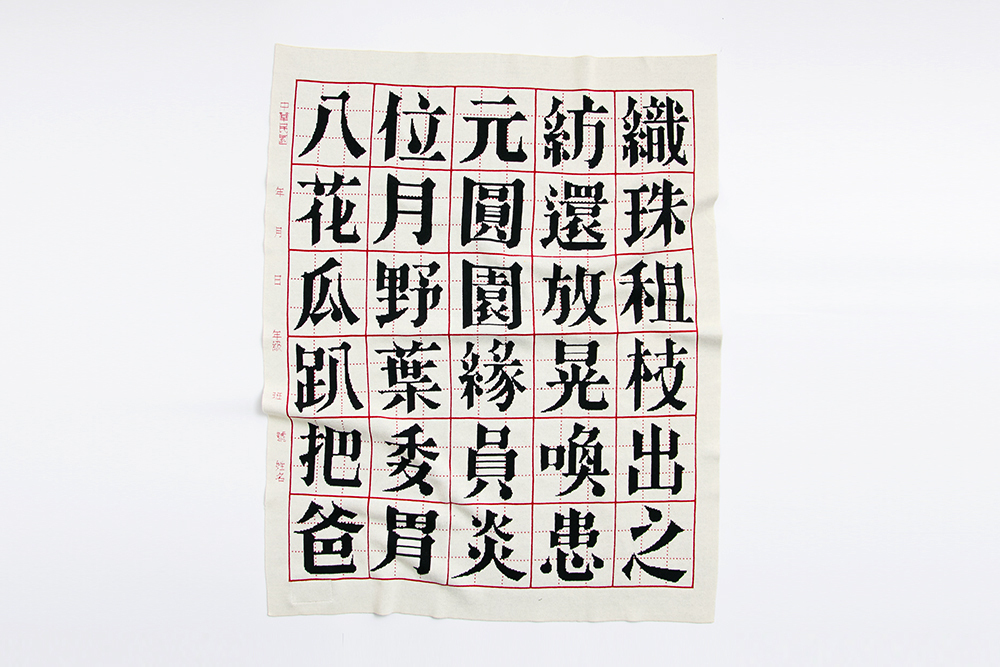 織珠租枝出之
紡還放晃喚患
元圓園緣員炎
位月野葉委胃
八花瓜趴把爸
年 月 日 年級 班 號 姓名